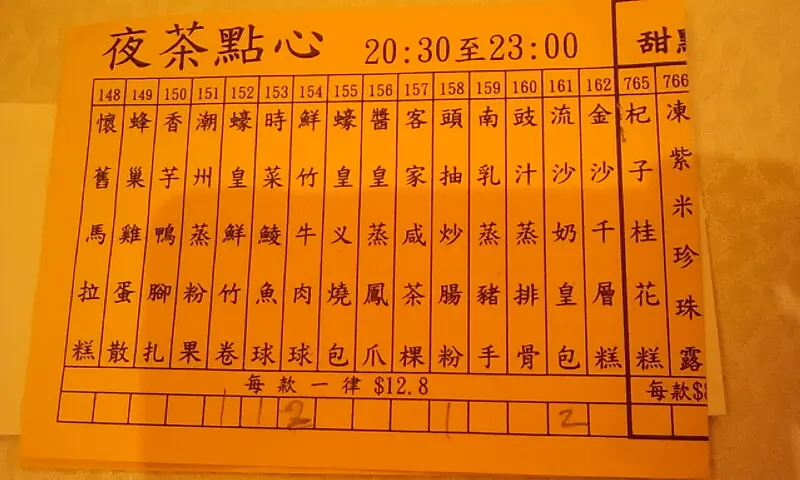 夜茶點心 20:30至23:00
甜
148 懷舊馬拉糕
149 蜂巢雞蛋散
150 香芋鴨腳扎
151 潮州蒸粉果
152 蠔皇鮮竹卷
153 時菜鯪魚球
154 鮮竹牛肉球
155 蠔皇义燒包
156 醬皇蒸鳳爪
157 客家咸茶粿
158 頭抽炒腸粉
159 南乳蒸豬手
160 豉汁蒸排骨
161 流沙奶皇包
162 金沙千層糕
765 杞子桂花糕
766 凍紫米珍珠露
每款一律$12.8
每款$
1 1 2 1 2